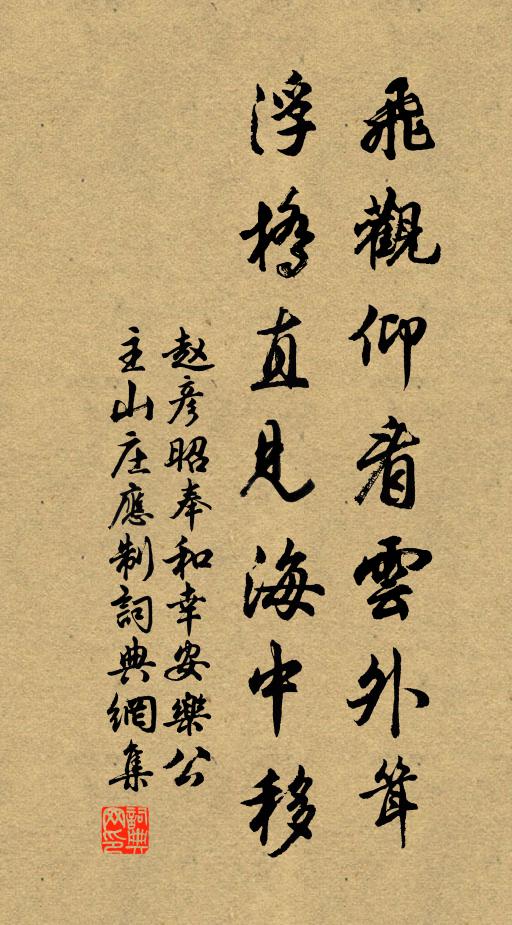 飛觀仰看雲外聳
浮橋直見海中移
赵彦昭奉和幸安樂公
主山庄應制詞典網集
詞典
网印